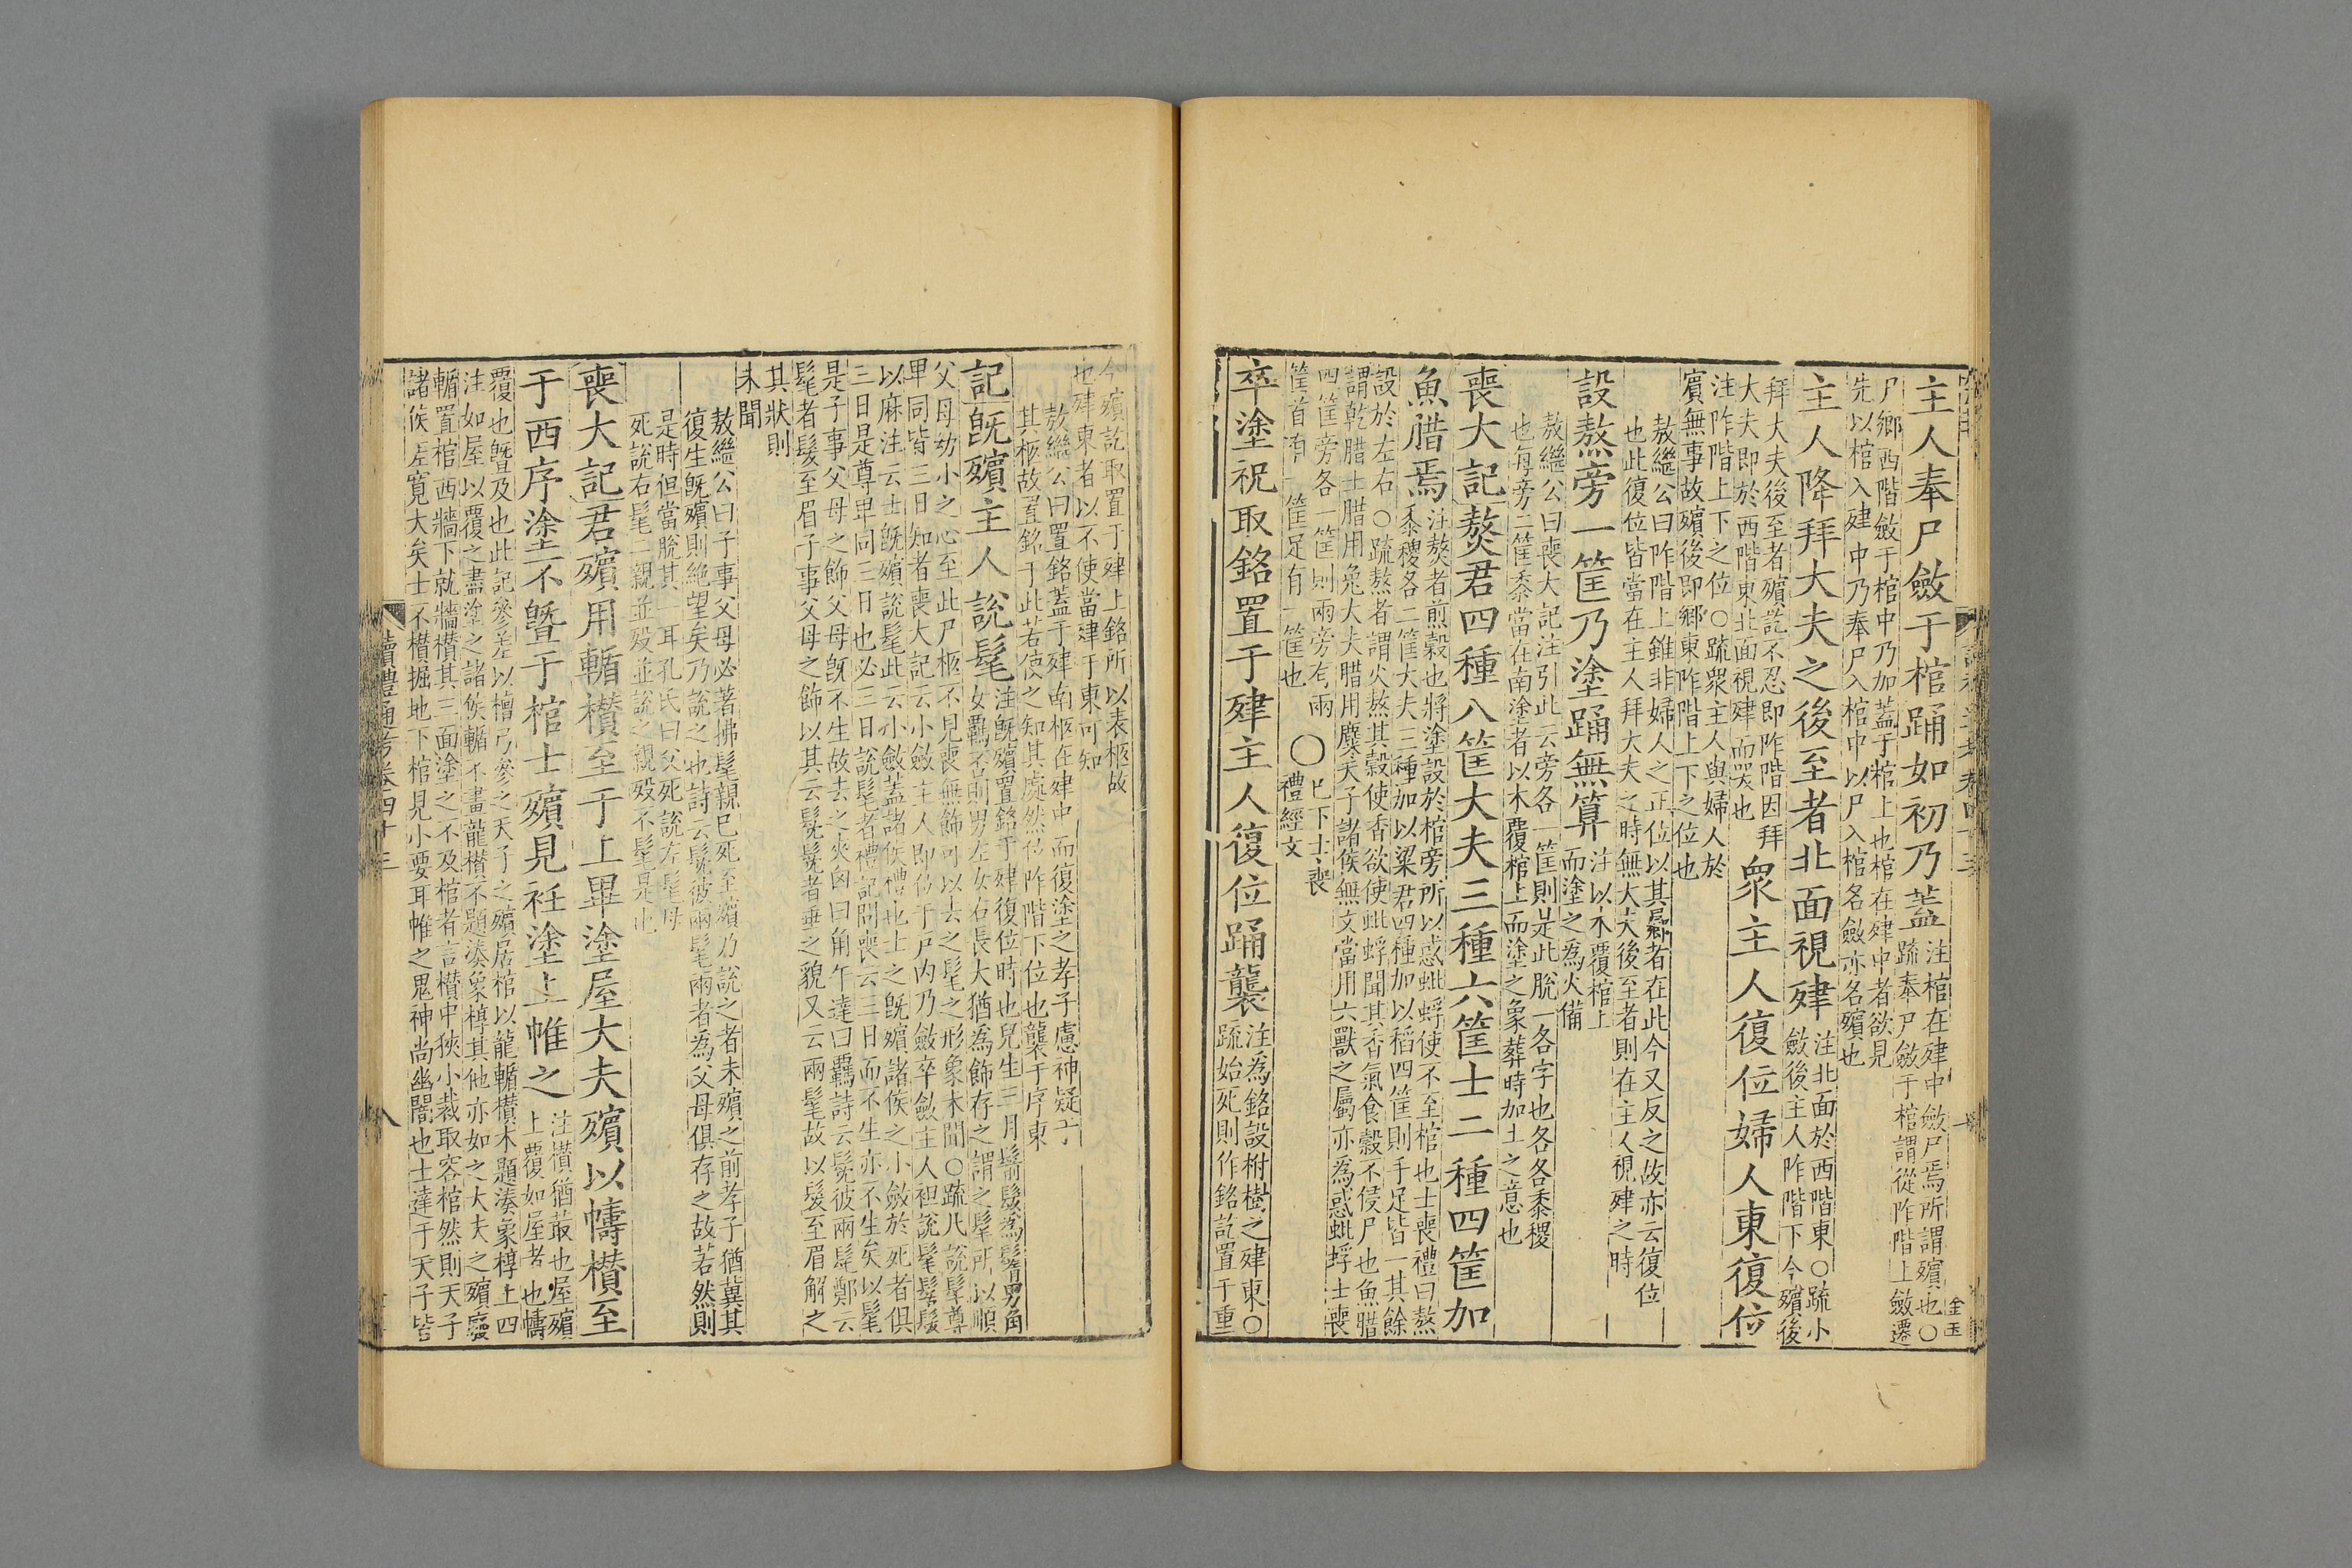 主人奉尸斂于棺踊如初乃蓋注棺在肂中斂尸焉所謂殯也○
疏奉尸斂于棺謂從阼階上斂遷
尸鄉西階斂于棺中乃加蓋于棺上也棺在肂中者欲見
先以棺入肂中乃奉尸入棺中以尸入棺名斂亦名殯也
主人降拜大夫之後至者北面視肂注北面於西階東○疏小
斂後主人阼階下今殯後
拜大夫後至者殯訖不忍即阼階因拜
大夫即於西階東北面視肂而哭也
衆主人復位婦人東復位
注阼階上下之位○疏衆主人與婦人於
賓無事故殯後即鄉東阼階上下之位也
敖繼公曰阼階上雖非婦人之正位以其屬者在此今又反之故亦云復位
也此復位皆當在主人拜大夫之時無大夫後至者則在主人視肂之時
設熬旁一筐乃塗踊無算注以木覆棺上
而塗之為火備
敖繼公曰喪大記注引此云旁各一筐則是此脫一各字也各各黍稷
也每旁二筐黍當在南塗者以木覆棺上而塗之象葬時加土之意也
喪大記熬君四種八筐大夫三種六筐士二種四筐加
魚腊焉注熬者煎穀也將塗設於棺旁所以惑蚍蜉使不至棺也士喪禮曰熬
黍稷各二筐大夫三種加以粱君四種加以稻四筐則手足皆一其餘
設於左右○疏熬者謂火熬其穀使香欲使蚍蜉聞其香氣食穀不侵尸也魚腊
謂乾腊士腊用兔大夫腊用麋天子諸侯無文當用六獸之屬亦為惑蚍蜉士喪
四筐旁各一筐則兩旁有兩
筐首有一筐足有一筐也
○巳下士喪
禮經文
卒塗祝取銘置于肂主人復位踊襲注為銘設柎樹之肂東○
疏始死則作銘訖置于重
今殯訖取置于肂上銘所以表柩故
也肂東者以不使當肂于東可知
敖繼公曰置銘蓋于肂南柩在肂中而復塗之孝子慮神疑于
其柩故置銘于此若使之知其處然位阼階下位也襲于序東
記旣殯主人說髦注旣殯置銘于肂復位時也兒生三月鬋髮為鬌男角
女羈否則男左女右長大猶為飾存之謂之髦所以順
父母幼小之心至此尸柩不見喪無飾可以去之髦之形象未聞○疏凡說髦尊
卑同皆三日知者喪大記云小斂主人即位于戶內乃斂卒斂主人袒說髦髺髮
以麻注云士旣殯說髦此云小斂蓋諸侯禮也士之旣殯諸侯之小斂於死者俱
三日是尊卑同三日也必三日說髦者禮記問喪云三日而不生亦不生矣以髦
是子事父母之飾父母旣不生故去之夾囟曰角午達曰羈詩云髧彼兩髦鄭云
髦者髮至眉子事父母之飾以其云髧髧者垂之貌又云兩髦故以髮至眉解之
其狀則
未聞
敖繼公曰子事父母必著拂髦親巳死至殯乃說之者未殯之前孝子猶冀其
復生旣殯則絶望矣乃說之也詩云髧彼兩髦兩者為父母俱存之故若然則
是時但當脫其一耳孔氏曰父死說左髦母
死說右髦二親並歿並說之親歿不髦是也
喪大記君殯用輴欑至于上畢塗屋大夫殯以幬欑至
于西序塗不曁于棺士殯見衽塗上帷之注欑猶菆也屋殯
上覆如屋者也幬
覆也曁及也此記參差以檀弓參之天子之殯居棺以龍輴欑木題湊象椁上四
注如屋以覆之盡塗之諸侯輴不畫龍欑不題湊象椁其他亦如之大夫之殯廢
輴置棺西牆下就牆欑其三面塗之不及棺者言欑中狹小裁取容棺然則天子
諸侯差寛大矣士不欑掘地下棺見小要耳帷之鬼神尚幽闇也士達于天子皆
讀禮通考卷四十三
八